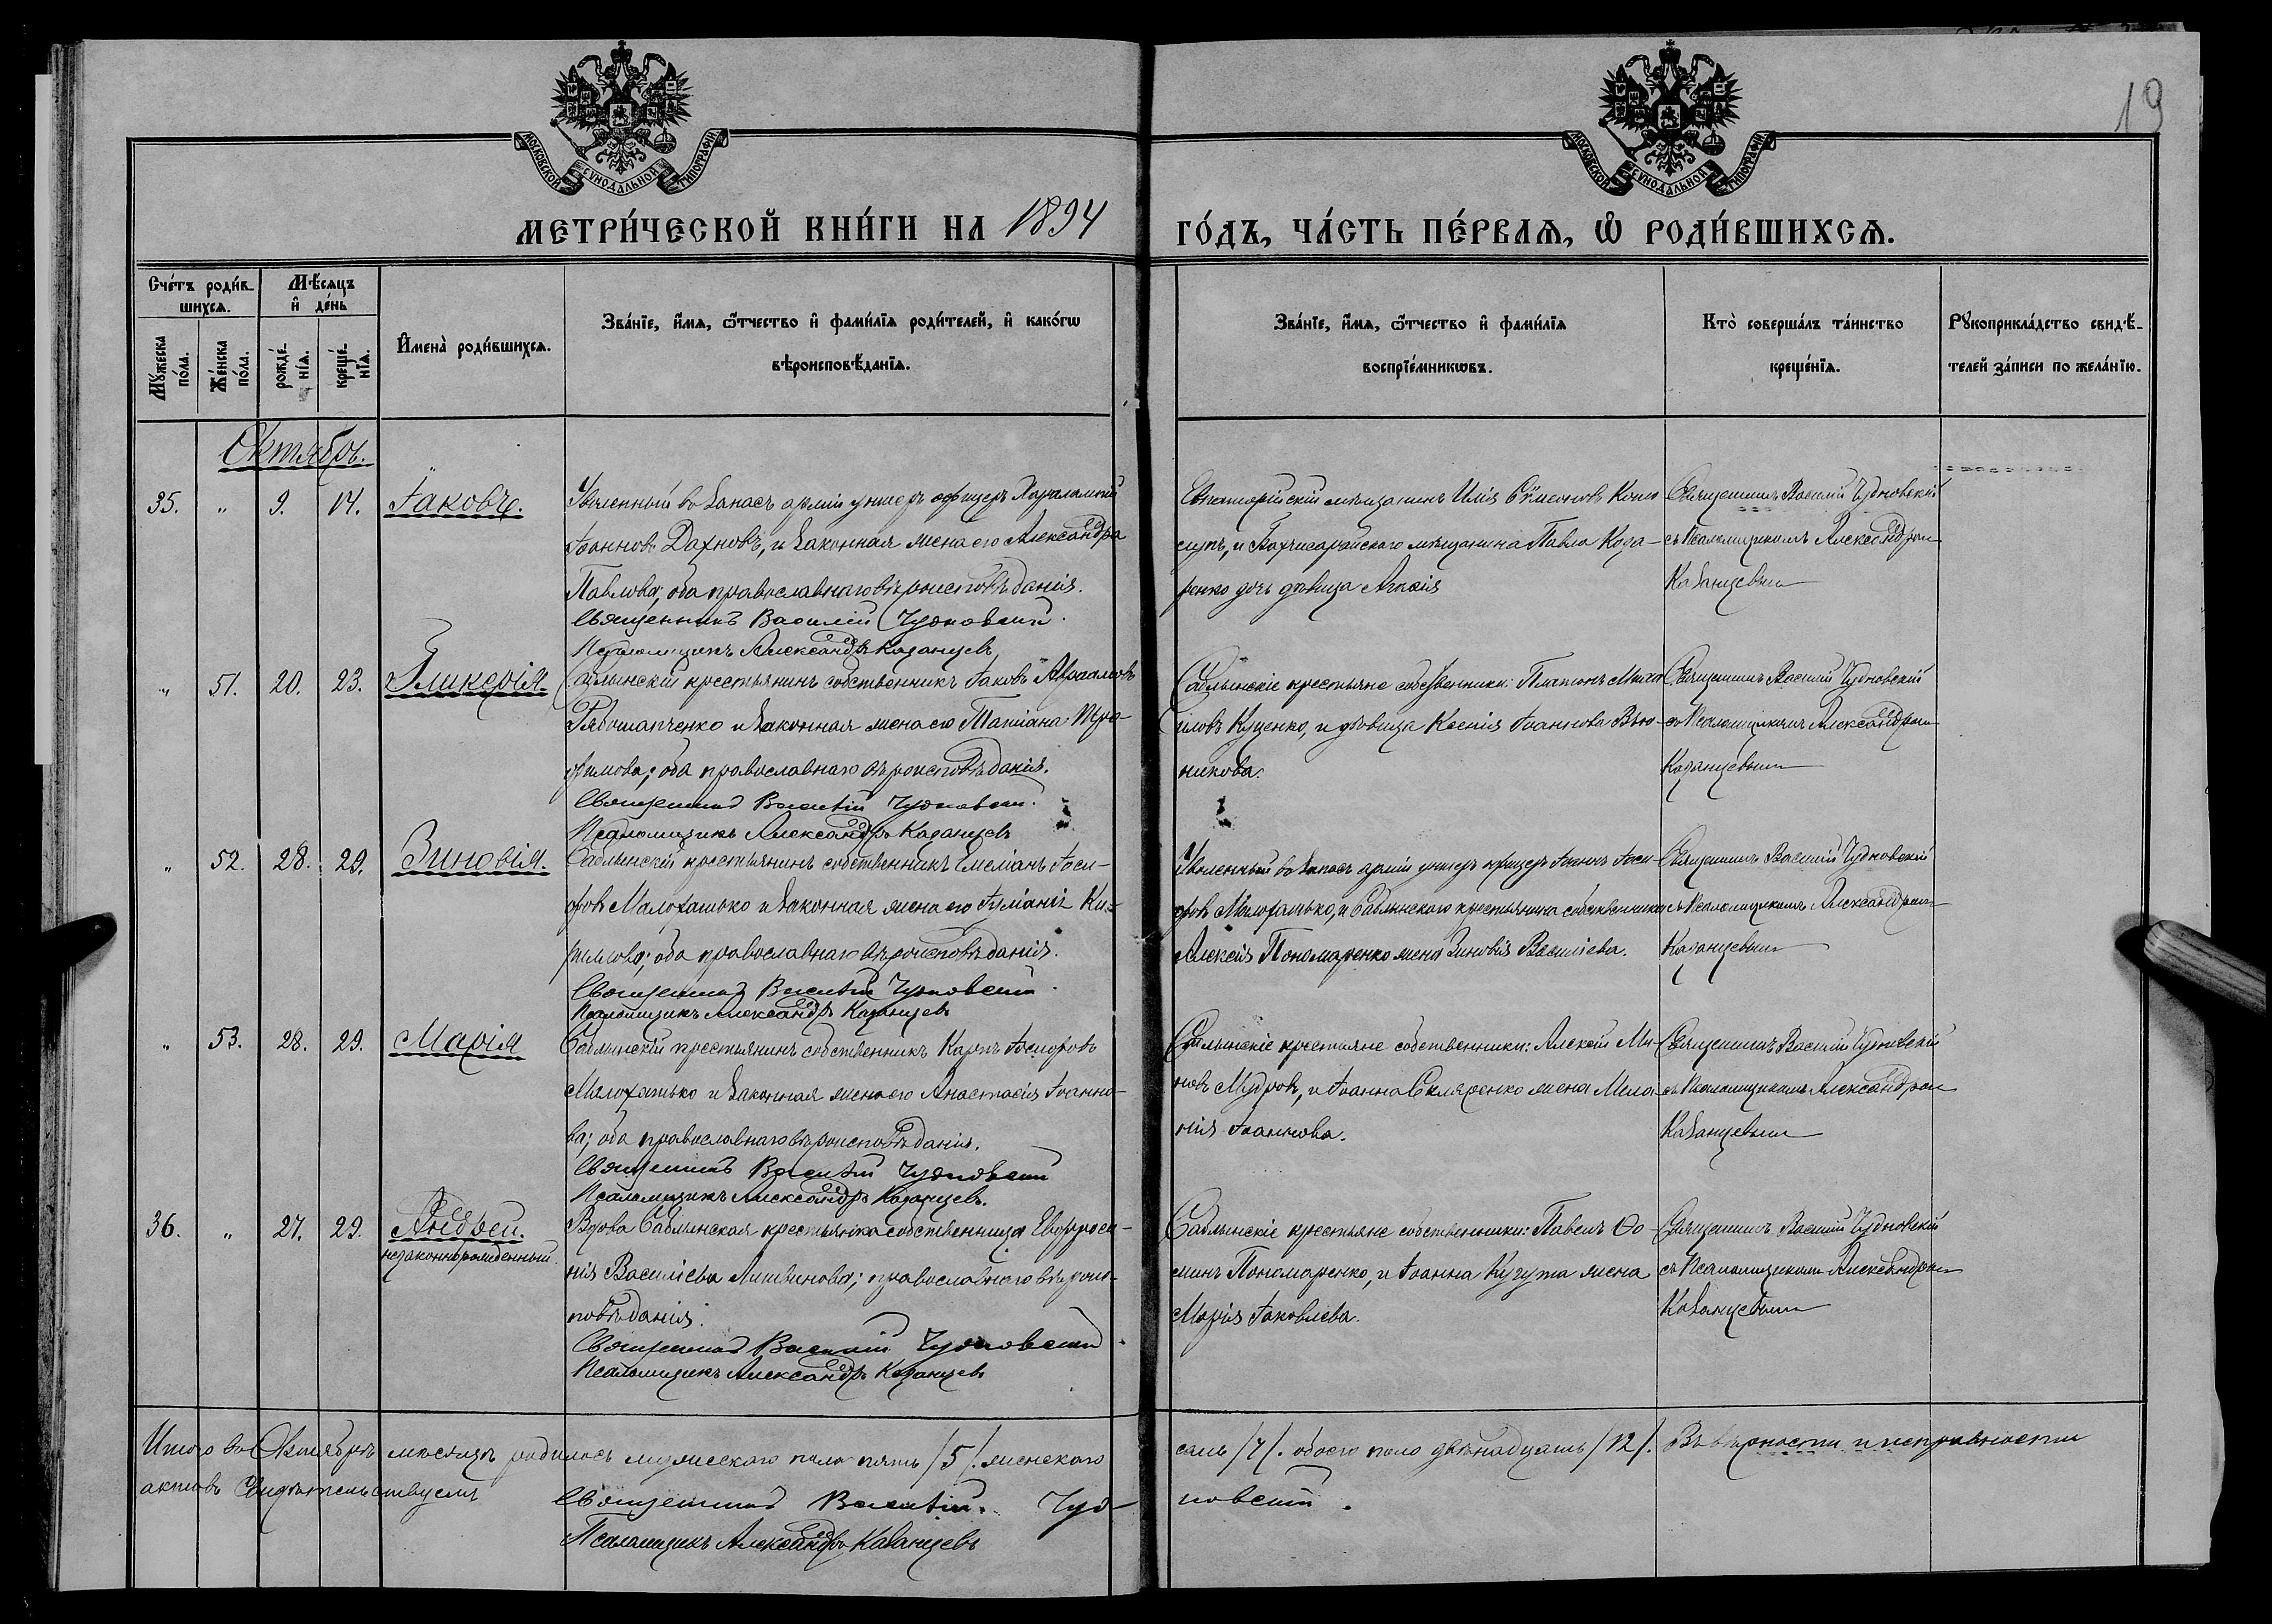 19
МОСКОВСКОЙ СѴНОДАЛЬНОЙ ТИПОГРАФІИ
МОСКОВСКОЙ СѴНОДАЛЬНОЙ ТИПОГРАФІИ
МЕТРИ́ЧЕСКОЙ КНИ́ГИ НА 1894 ГО́ДЪ, ЧА́СТЬ ПЕ́РВАѦ, Ѽ РОДИ́ВШИХСѦ.
Сче́тъ роди́в-
шихсѧ.
Мꙋ́жеска по́ла.
Же́нска по́ла.
Мѣ́сѧцъ
и҆ де́нь
рожде́-нїѧ.
креще́-нїѧ.
И҆мена̀ роди́вшихсѧ.
Зва́нїе, и҆́мѧ, ѻ҆́тчество и҆ фами́лїѧ роди́телей, и҆ како́гѡ
вѣроисповѣ́данїѧ.
Зва́нїе, и҆́мѧ, ѻ҆́тчество и҆ фами́лїѧ
воспрїе́мникѡвъ.
Кто̀ соверша́лъ та́инство
креще́нїѧ.
Рꙋкоприкла́дство свидѣ́-
телей за́писи по жела́нїю.
Октябрь.
35. " 9. 14. Іаковъ.
Уволенный въ запасъ арміи унтеръ офицеръ Харалампій
Іоанновъ Дахновъ, и законная жена его Александра
Павлова; оба православнаго вѣроисповѣданія.
Священникъ Василій Чудновскій.
Псаломщикъ Александръ Казанцевъ
Евпаторійскій мѣщанинъ Илія Сѵмеоновъ
и Бахчисарайскаго мѣщанина Павла Коза-
ренко дочь дѣвица
Священникъ Василій Чудновскій
съ Псаломщикомъ Александромъ
Казанцевымъ
" 51. 20. 23. Гликерія.
Саблынскій крестьянинъ собственникъ Іаковъ Авраамовъ
Рябошапченко и законная жена его Татіана Тро-
фимова; оба православнаго вѣроисповѣданія.
Священникъ Василій Чудновскій.
Псаломщикъ Александръ Казанцевъ
Саблынскіе крестьяне собственники: Платонъ Миха-
иловъ Куценко, и дѣвица Ксенія Іоаннова Вью-
никова.
Священникъ Василій Чудновскій
съ Псаломщикомъ Александромъ
Казанцевымъ
" 52. 28. 29. Зиновія.
Саблынскій крестьянинъ собственникъ Емеліанъ Іоси-
фовъ Малохатько и законная жена его Іуліанія Ки-
риллова; оба православнаго вѣроисповѣданія.
Священникъ Василій Чудновскій.
Псаломщикъ Александръ Казанцевъ
Уволенный въ запасъ арміи унтеръ офицеръ Іоаннъ Іоси-
фовъ Малохатько, и Саблынскаго крестьянина собственника
Алексія Пономаренко жена Зиновія Василіева.
Священникъ Василій Чудновскій
съ Псаломщикомъ Александромъ
Казанцевымъ
" 53. 28. 29. Марія
Саблынскій крестьянинъ собственникъ Карпъ Іосифовъ
Малохатько и законная жена его Анастасія Іоанно-
ва; оба православнаго вѣроисповѣданія.
Священникъ Василій Чудновскій
Псаломщикъ Александръ Казанцевъ.
Саблынскіе крестьяне собственники: Алексій Ми-
новъ Мудровъ, и Іоанна Скляренко жена Мела-
нія Іоаннова.
Священникъ Василій Чудновскій
съ Псаломщикомъ Александромъ
Казанцевымъ
36. " 27. 29. Андрей.
незаконнорожденный.
Вдова Саблынская крестьянка собственница Евфроси-
нія Василіева Литвинова; православнаго вѣроис-
повѣданія.
Священникъ Василій Чудновскій.
Псаломщикъ Александръ Казанцевъ
Саблынскіе крестьяне собственники: Павелъ Ѳо-
минъ Пономаренко, и Іоанна Кугута жена
Марія Іаковлева.
Священникъ Василій Чудновскій
съ Псаломщикомъ Александромъ
Казанцевымъ
Итого въ Октябрѣ мѣсяцѣ родилось мужескаго пола пять /5/. женскаго семь /7/. обоего пола двѣнадцать /12/. Въ вѣрности и исправности
актовъ свидѣтельствуемъ Священникъ Василій Чуд-новскій.
Псаломщикъ Александръ Казанцевъ